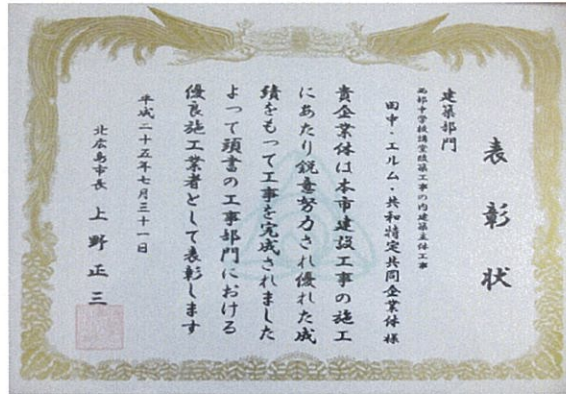 表彰状
建築部門
西部中学校講堂改築工事の内建築主体工事
田中・エルム・共和特定共同企業体様
貴企業体は本市建設工事の施工
にあたり鋭意努力され優れた成
績をもって工事を完成されました
よって頭書の工事部門における
優良施工業者として表彰します
平成二十五年七月三十一日
北広島市長 上野正三